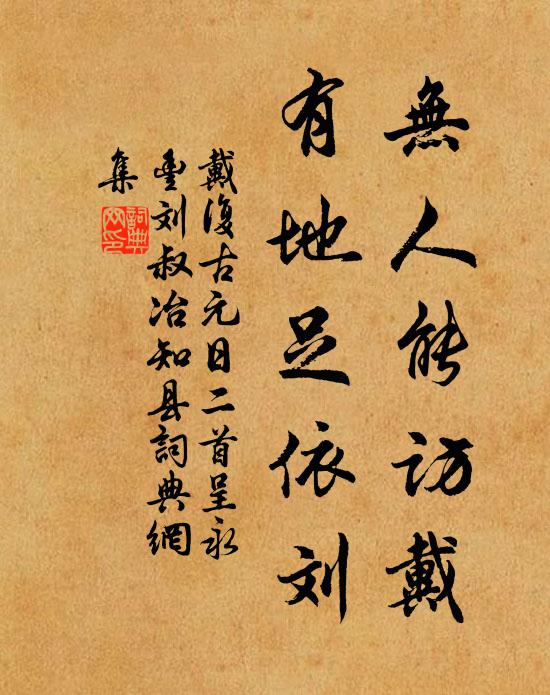 無人能訪戴
有地足依刘
戴復古元日二首呈永
豊刘叔冶知县詞典網
集
詞典
网印